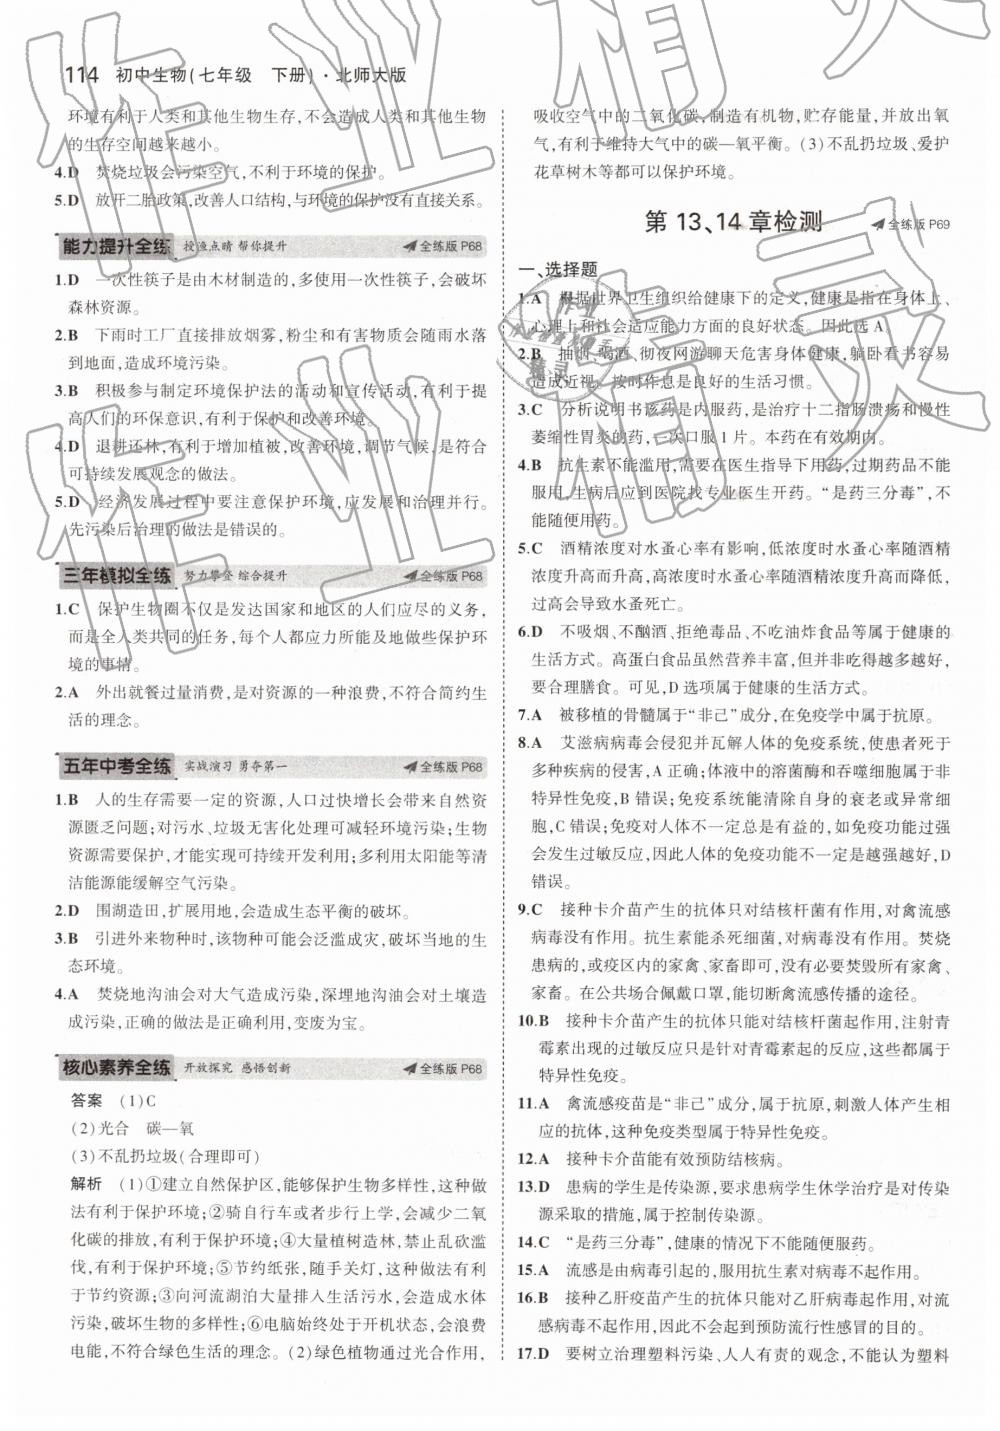 114 初中生物(七年级 下册)·北师大版
环境有利于人类和其他生物生存,不会造成人类和其他生物
的生存空间越来越小。
4.D 焚烧垃圾会污染空气,不利于环境的保护。
5.D 放开二胎政策,改善人口结构,与环境的保护没有直接关系。
能力提升全练 授渔点睛 帮你提升 全练版 P68
1.D 一次性筷子是由木材制造的,多使用一次性筷子,会破坏
森林资源。
2.B 下雨时工厂直接排放烟雾,粉尘和有害物质会随雨水落
到地面,造成环境污染。
3.B 积极参与制定环境保护法的活动和宣传活动,有利于提
高人们的环保意识,有利于保护和改善环境。
4.D 退耕还林,有利于增加植被,改善环境,调节气候,是符合
可持续发展观念的做法。
5.D 经济发展过程中要注意保护环境,应发展和治理并行。
先污染后治理的做法是错误的。
三年模拟全练 努力攀登 综合提升 全练版 P68
1.C 保护生物圈不仅是发达国家和地区的人们应尽的义务,
而是全人类共同的任务,每个人都应力所能及地做些保护环
境的事情。
2.A 外出就餐过量消费,是对资源的一种浪费,不符合简约生
活的理念。
五年中考全练 实战演习 勇夺第一 全练版 P68
1.B 人的生存需要一定的资源,人口过快增长会带来自然资
源匮乏问题;对污水、垃圾无害化处理可减轻环境污染;生物
资源需要保护,才能实现可持续开发利用;多利用太阳能等清
洁能源能缓解空气污染。
2.D 围湖造田,扩展用地,会造成生态平衡的破坏。
3.B 引进外来物种时,该物种可能会泛滥成灾,破坏当地的生
态环境。
4.A 焚烧地沟油会对大气造成污染,深埋地沟油会对土壤造
成污染,正确的做法是定点回收利用,变废为宝。
核心素养全练 开放探究 感悟创新 全练版 P68
答案 (1)C
(2)光合 碳—氧
(3)不乱扔垃圾(合理即可)
解析 (1)①建立自然保护区,能够保护生物多样性,这种做
法有利于保护环境;②骑自行车或者步行上学,会减少二氧
化碳的排放,有利于保护环境;④大量植树造林,禁止乱砍滥
伐,有利于保护环境;⑤节约纸张,随手关灯,这样能够有利
于节约资源;③向河流湖泊大量排入生活污水,会造成水体
污染,破坏生物的多样性;⑥电脑始终处于开机状态,会浪费
电能,不符合绿色生活的理念。(2)绿色植物通过光合作用,
吸收空气中的二氧化碳,制造有机物,贮存能量,并放出氧
气,有利于维持大气中的碳—氧平衡。(3)不乱扔垃圾、爱护
花草树木等都可以保护环境。
第 13、14 章检测 全练版 P69
一、选择题
1.A 根据世界卫生组织给健康下的定义,健康是指在身体上、
心理上和社会适应能力方面的良好状态。因此选 A。
2.B 抽烟、喝酒、彻夜网游聊天危害身体健康,躺卧看书容易
造成近视。按时作息是良好的生活习惯。
3.C 分析说明书该药是内服药,是治疗十二指肠溃疡和慢性
萎缩性胃炎的药,一次口服 1 片。本药在有效期内。
4.B 抗生素不能滥用,需要在医生指导下用药,过期药品不能
服用,生病后应到医院找专业医生开药。“是药三分毒”,不
能随便用药。
5.C 酒精浓度对水蚤心率有影响,低浓度时水蚤心率随酒精
浓度升高而升高,高浓度时水蚤心率随酒精浓度升高而降低,
过高会导致水蚤死亡。
6.D 不吸烟、不酗酒、拒绝毒品、不吃油炸食品等属于健康的
生活方式。高蛋白食品虽然营养丰富,但并非吃得越多越好,
要合理膳食。可见,D 选项属于健康的生活方式。
7.A 被移植的骨髓属于“非己”成分,在免疫学中属于抗原。
8.A 艾滋病病毒会侵犯并瓦解人体的免疫系统,使患者死于
多种疾病的侵害,A 正确;体液中的溶菌酶和吞噬细胞属于非
特异性免疫,B 错误;免疫系统能清除自身的衰老或异常细
胞,C 错误;免疫对人体不一定总是有益的,如免疫功能过强
会发生过敏反应,因此人体的免疫功能不一定是越强越好,D
错误。
9.C 接种卡介苗产生的抗体只对结核杆菌有作用,对禽流感
病毒没有作用。抗生素能杀死细菌,对病毒没有作用。焚烧
患病的,或疫区内的家禽、家畜即可,没有必要焚毁所有家禽、
家畜。在公共场合佩戴口罩,能切断禽流感传播的途径。
10.B 接种卡介苗产生的抗体只能对结核杆菌起作用,注射青
霉素出现的过敏反应只是针对青霉素起的反应,这些都属于
特异性免疫。
11.A 禽流感疫苗是“非己”成分,属于抗原,刺激人体产生相
应的抗体,这种免疫类型属于特异性免疫。
12.A 接种卡介苗能有效预防结核病。
13.D 患病的学生是传染源,要求患病学生休学治疗是对传染
源采取的措施,属于控制传染源。
14.C “是药三分毒”,健康的情况下不能随便服药。
15.A 流感是由病毒引起的,服用抗生素对病毒不起作用。
16.B 接种乙肝疫苗产生的抗体只能对乙肝病毒起作用,对流
感病毒不起作用,因此不会起到预防流行性感冒的目的。
17.D 要树立治理塑料污染、人人有责的观念,不能认为塑料
作业精灵
作业精灵